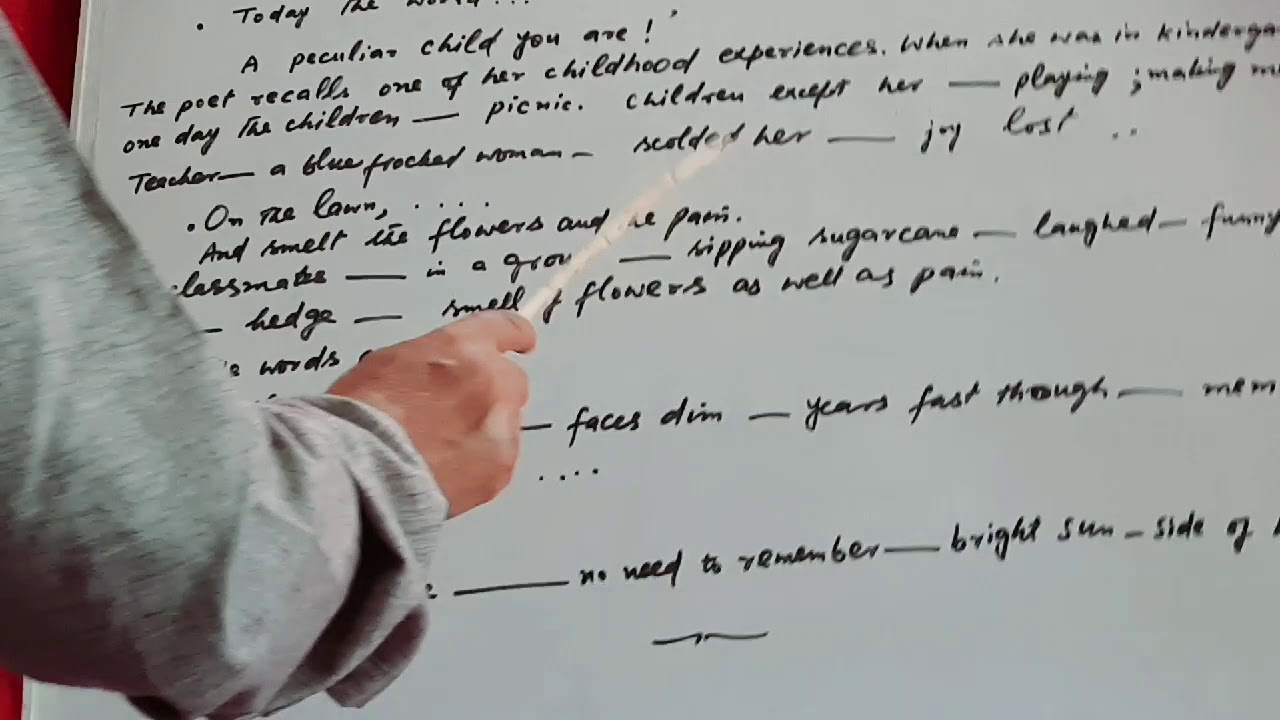 . Today the world...
A peculiar child you are!'
The poet recalls one of her childhood experiences. When she was in
one day the children — picnic. children except her — playing ; making
Teacher— a blue frocked woman – scolded her — joy lost ..
. On the lawn, . . . . .
And smelt the flowers and pain.
— in a — sipping sugarcane — laughed — funny
— hedge — smell flowers as well as pain.
words
— faces dim — years fast through —
. . . .
— no need to remember — bright sun – side of